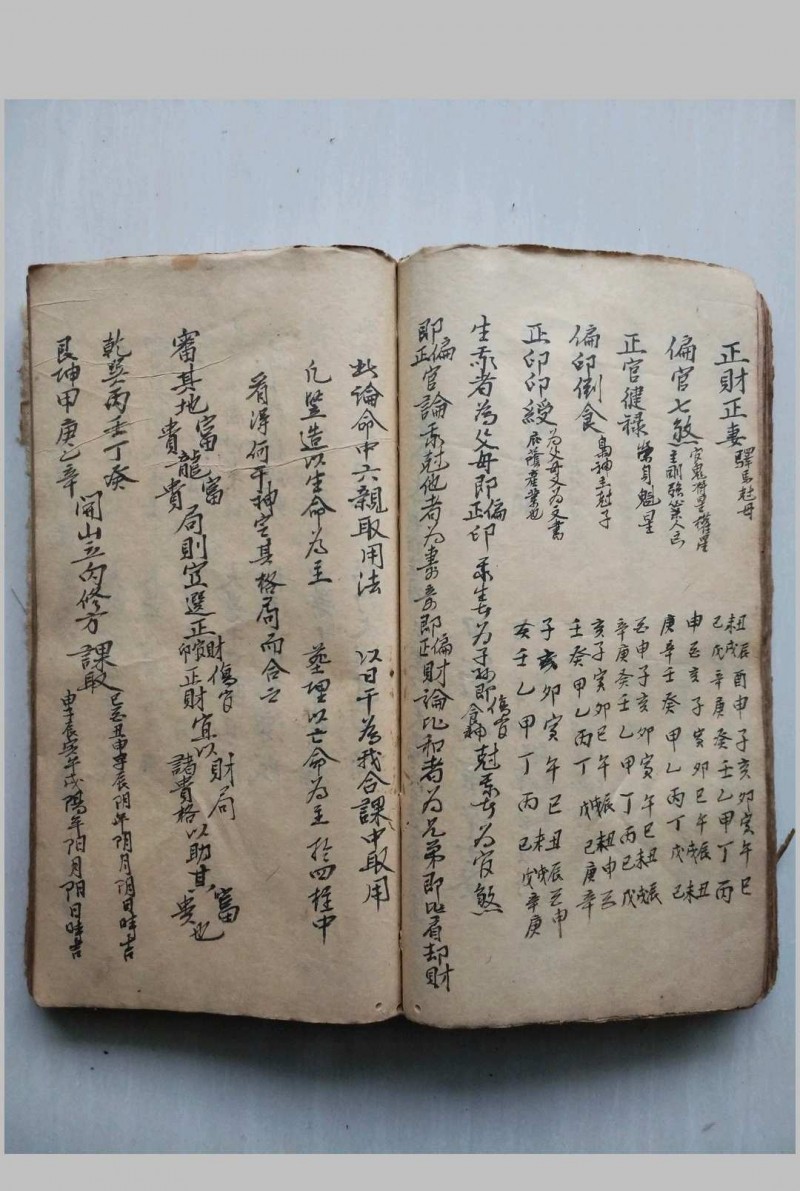 正財正妻 驛馬尅母 丑辰酉申子亥卯寅午巳
未戌
己戊辛庚癸壬乙甲丁丙
偏官七煞 官鬼将星權星
主剛強
申酉亥子寅卯巳午戌辰丑未
庚辛壬癸甲乙丙丁戊己
正官健禄 榮身魁星 酉申子亥卯寅午巳丑未戌辰
辛庚癸壬乙甲丁丙己戊
偏印倒食 梟神主尅子 亥子寅卯巳午戌辰丑未申酉
壬癸甲乙丙丁戊己庚辛
正印印綬 為父母又為文書
産業也
子亥卯寅午巳丑未戌辰酉申
癸壬乙甲丁丙己戊辛庚
生我者為父母即偏正印 我生者為子孫即傷官食神 尅我者為官煞
即偏正官論 我尅他者為妻妾即偏正財論 比和者為兄弟即比肩却財
此論命中六親取用法 以日干為我合課中取用
凡竪造以生命為主 葬埋以亡命為主 於四柱中
看得何干神定其格局而合之
審其地富貴龍富貴局則宜選正財官印傷官正財宜以財局諸貴格以助其富貴也
乾巽丙壬丁癸
艮坤甲庚乙辛
開山立向修方 課取
巳酉丑申子辰阴年阴月阴日時吉
申子辰寅午戌陽年阳月阳日時吉